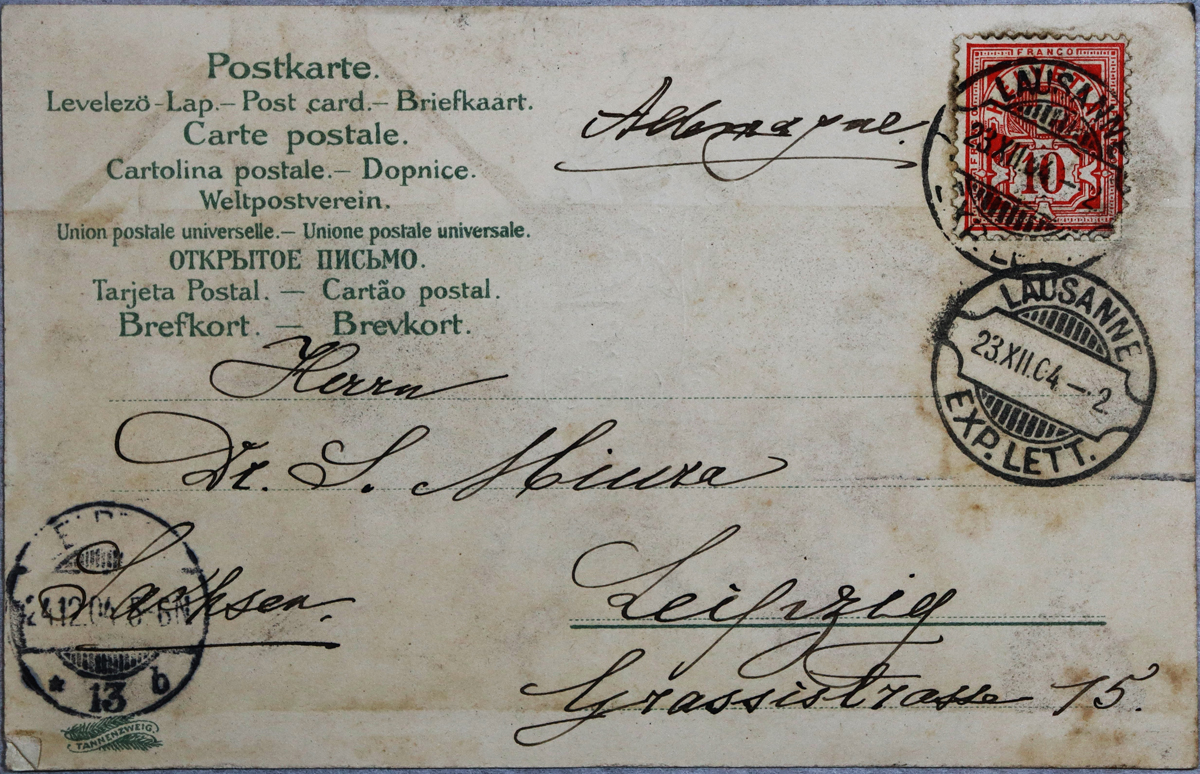 Postkarte.
Levelezö-Lap.– Post card.– Briefkaart.
Carte postale.
Cartolina postale.– Dopnice.
Weltpostverein.
Union postale universelle.– Unione postale universale.
ОТКРЫТОЕ ПИСЬМО.
Tarjeta Postal. — Cartão postal.
Brefkort. — Brevkort.
Allemagne.
FRANCO
10
LAUSANNE
23.XII.04 – 2
LAUSANNE
23.XII.04 – 2
EXP. LETT.
Herrn
Dr. S. Miura
Sachsen.
Leipzig
Grassistrasse 15.
24.12.04
* 13 b
TANNENZWEIG.